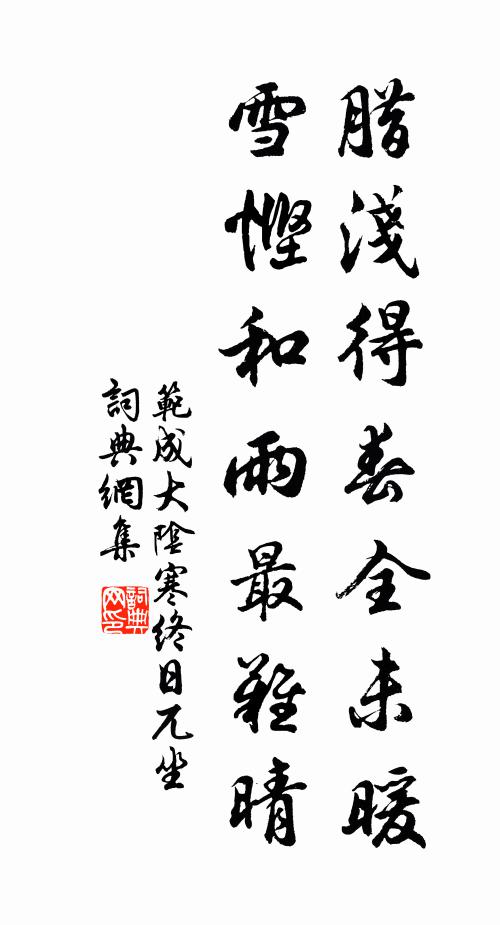 腊淺得春全未暖
雪慳和雨最難晴
範成大陰寒終日兀坐
詞典網集
詞典
网印